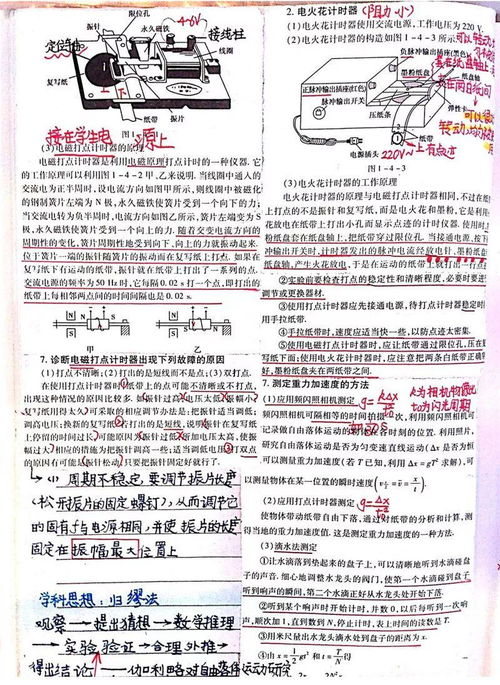 限位孔
振针
永久磁铁
4-6V
接线柱
线圈
定位轴
复写纸
纸带
振片
接在学生电源上
图1-4-2
(3)电磁打点计时器的原理
电磁打点计时器是利用电磁原理打点计时的一种仪器.它
的工作原理可以利用图1-4-2甲、乙来说明.当线圈中通入的
交流电为正半周时,设电流方向如图甲所示,则线圈中被磁化
的钢制簧片左端为N极,永久磁铁使簧片受到一个向下的力;
当交流电转为负半周时,电流方向如图乙所示,簧片左端变为S
极,永久磁铁使簧片受到一个向上的力.随着交变电流方向的
周期性的变化,簧片周期性地受到向下、向上的力就振动起来.
位于簧片一端的振针随簧片的振动而在复写纸上打点.如果在
复写纸下有运动的纸带,振针就在纸带上打出了一系列的点.
交流电源的频率为50 Hz时,它每隔0.02 s打一个点,即打出的
纸带上每相邻两点间的时间间隔是0.02 s.
甲
乙
7. 诊断电磁打点计时器出现下列故障的原因
(1)打点不清晰;(2)打出的是短线而不是点;(3)双打点.
在使用打点计时器时,纸带上的点可能不清晰或不打点,
出现这种情况的原因比较多.
调高电压;换新的复写纸;若打出的是短线,说明振针在复写纸
上停留的时间过长,可能原因为振针过低、所加电压太高,使振
幅过大,相应的措施为把振针调高一些;适当调低电压;打双点
的原因有可能是振针松动,只要把振针固定好就行了.
(1) 周期不稳定,要调节振片长度
(松开振片的固定螺钉),从而调节它
的固有f与电源相同,并使振片的长度
固定在振幅最大位置上
学科思想:归缪法
观察→提出猜想→数学推理
→实验验证→合理外推→
得出结论——伽利略对自由落体运动的研究
2. 电火花计时器(阻力小)
(1)电火花计时器使用交流电源,工作电压为220 V.
(2)电火花计时器的构造如图1-4-3所示
负脉冲输出插座(黑色)
墨粉纸盘
纸盘轴
正脉冲输出插座(红色)
脉冲输出开关
压纸条
弹性卡
纸带
电源插头
220V~
上有点迹
图1-4-3
(3)电火花计时器的工作原理
电火花计时器的原理与电磁打点计时器相同,不过在纸带
上打点的不是振针和复写纸,而是电火花和墨粉,它是利用火
花放电在纸带上打出小孔而显示点迹的计时仪器.使用时,墨
粉纸盘套在纸盘轴上,把纸带穿过限位孔.当接通电源,按下脉
冲输出开关时,计时器发出的脉冲电流经放电针、墨粉纸盘到
纸盘轴,产生火花放电,于是在运动的纸带上就打出一行点迹.
②实验前要检查打点的稳定性和清晰程度,必要时要进行
调节或更换器材.
③使用打点计时器应先接通电源,待打点计时器稳定时再
用手拉纸带.
④手拉纸带时,速度应适当快一些,以防点迹太密集.
⑤使用电磁打点计时器时,应让纸带通过限位孔,压在复
写纸下面;使用电火花计时器时,应注意把两条白纸带正确穿
好,墨粉纸盘夹在两纸带之间.
7. 测定重力加速度的方法
(1)应用频闪照相机测定
频闪照相机可隔相等的时间拍摄一次,利用频闪照相机可
记录做自由落体运动的物体在各时刻的位置.利用照片,
研究自由落体运动是否为匀变速直线运动(Δx是否为恒
可以测量重力加速度(若T已知,利用Δx=gT²求解),可
以测量物体在某一位置的瞬时速度(v_{t/2}=v̄=x/t).
(2)应用打点计时器测定
使物体带动纸带自由下落,通过对纸带的分析和计算,测
得当地的重力加速度值.这是测定重力加速度的一种方法.
(3)滴水法测定
①让水滴落到垫起来的盘子上,可以清晰地听到水滴碰盘
子的声音.细心地调整水龙头的阀门,使第一个水滴碰到盘子
听到响声的瞬间,第二个水滴正好从水龙头处开始下落.
②听到某个响声时开始计时,并数0,以后每听到一次响
声,顺次加1,直到数到N,停止计时,表上时间的读数是T.
③用米尺量出水龙头滴水处到盘子的距离为x.
④由x=1/2gt²和t=T/N得